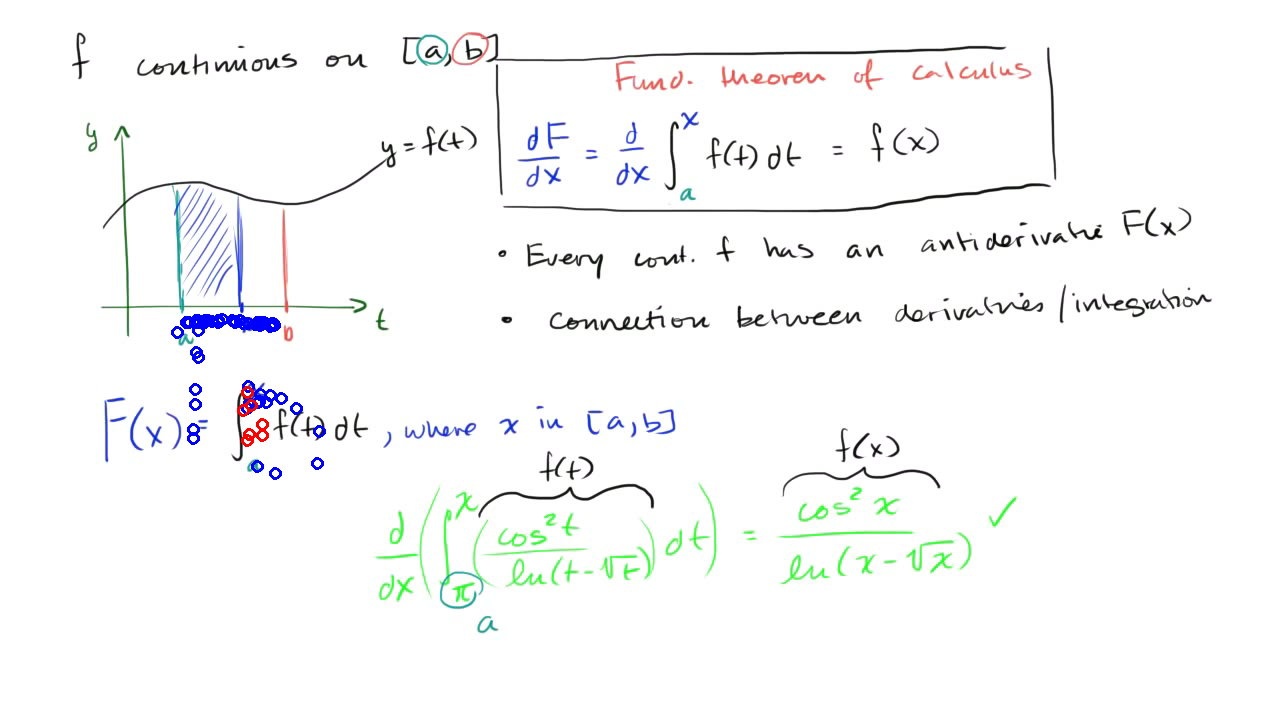 f continuous on [a, b]
Fund. theorem of calculus
y
y = f(t)
dF/dx = d/dx ∫_a^x f(t) dt = f(x)
• Every cont. f has an antiderivative F(x)
• Connection between derivatives / integration
t
a
b
F(x) = ∫ f(t) dt , where x in [a, b]
f(t)
f(x)
d/dx ( ∫_π^x ( cos²t / ln(t-√t) ) dt ) = cos² x / ln(x-√x) ✓
a